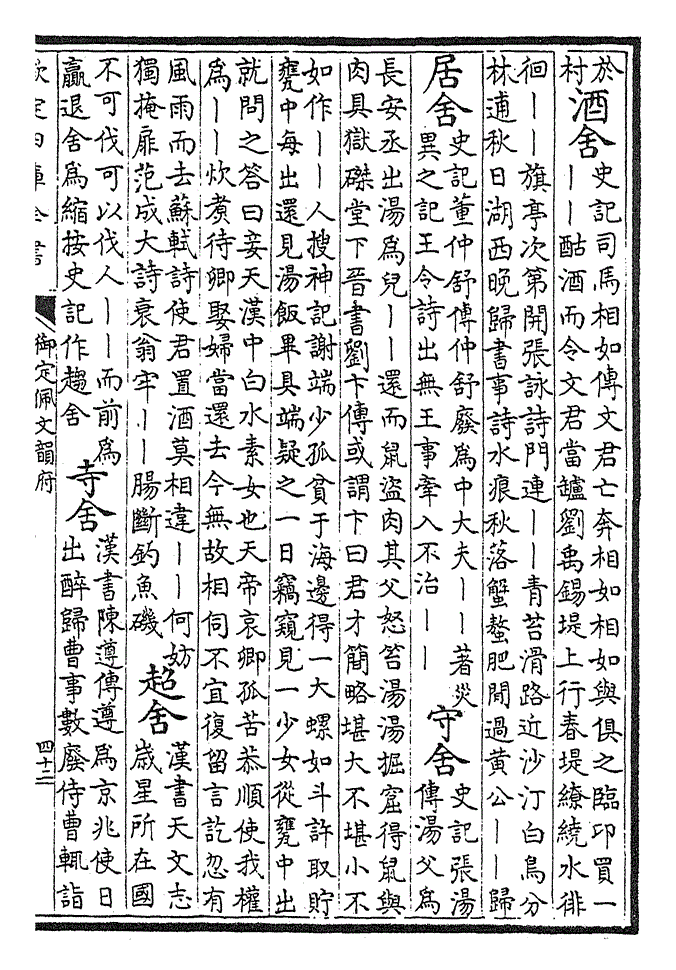 於
村
酒舍
史記司馬相如傳文君亡奔相如相如與俱之臨卭買一
丨丨酤酒而令文君當鑪劉禹錫堤上行春堤繚繞水徘
徊丨丨旗亭次第開張詠詩門連丨丨青苔滑路近沙汀白鳥分
林逋秋日湖西晚歸書事詩水痕秋落蟹螯肥閒過黄公丨丨歸
居舍
史記董仲舒傳仲舒廢爲中大夫丨丨著災
異之記王令詩出無王事牽入不治丨丨
守舍
史記張湯
傳湯父爲
長安丞出湯爲兒丨丨還而鼠盜肉其父怒笞湯湯掘窟得鼠與
肉具獄磔堂下晉書劉卞傳或謂卞曰君才簡略堪大不堪小不
如作丨丨人搜神記謝端少孤貧于海邊得一大螺如斗許取貯
甕中每出還見湯飯畢具端疑之一日竊窺見一少女從甕中出
就問之答曰妾天漢中白水素女也天帝哀卿孤苦恭順使我權
爲丨丨炊煑待卿娶婦當還去今無故相伺不宜復留言訖忽有
風雨而去蘇軾詩使君置酒莫相違丨丨何妨
獨掩扉范成大詩衰翁牢丨丨腸斷釣魚磯
超舍
漢書天文志
歲星所在國
不可伐可以伐人丨丨而前爲
贏退舍爲縮按史記作趨舍
寺舍
漢書陳遵傳遵爲京兆使日
出醉歸曹事數廢侍曹輒詣
欽定四庫全書
御定佩文韻府
四十二